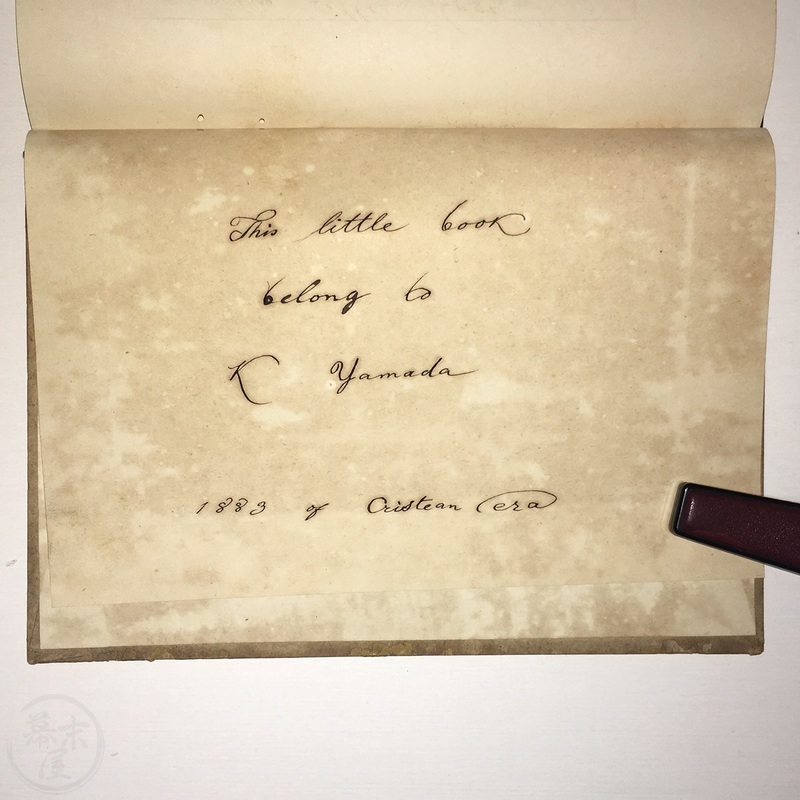 This little book
belong to
K Yamada
1883 of Cristean era
幕末屋